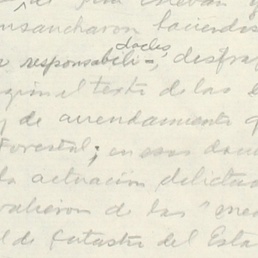 ensancharon haciendo
responsabili-dades, disfra
según el texto de las e
y de arrendamiento q
Forestal; en esos docu
la actuación delictu
valieron de las "me
l de Catastro del Esta